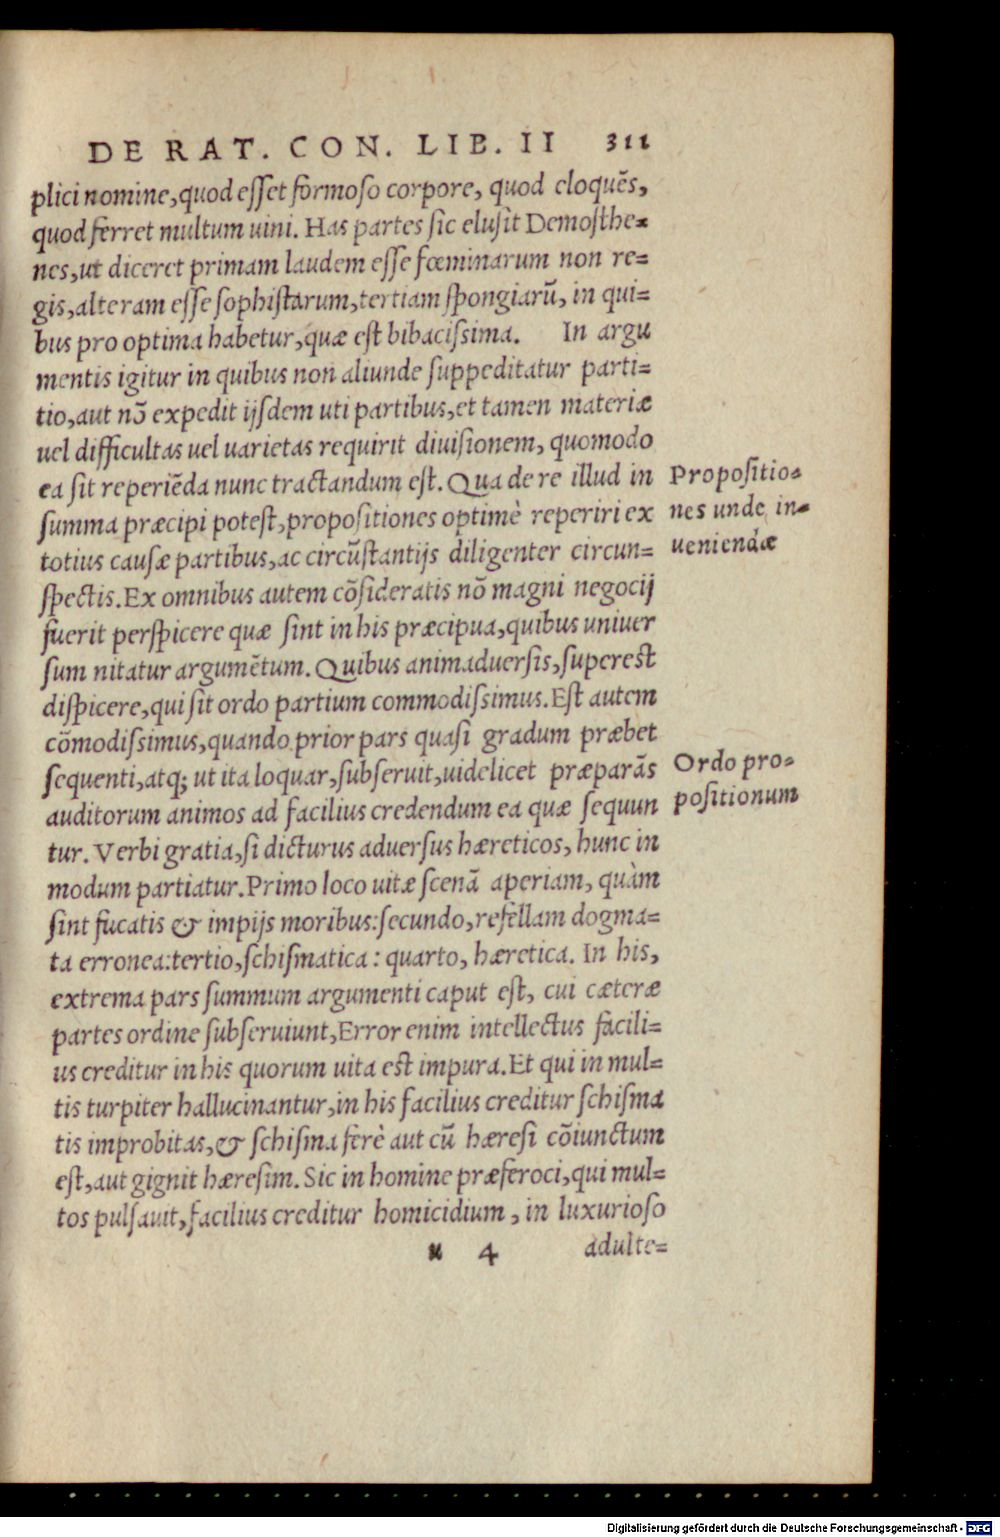 DE RAT. CON. LIB. II 311
plici nomine, quod esset formoso corpore, quod eloquẽs,
quod ferret multum uini. Has partes sic elusit Demosthe=
nes, ut diceret primam laudem esse fœminarum non re=
gis, alteram esse sophistarum, tertiam spongiarũ, in qui=
bus pro optima habetur, quæ est bibacissima. In argu
mentis igitur in quibus non aliunde suppeditatur parti=
tio, aut nõ expedit ijsdem uti partibus, et tamen materiæ
uel difficultas uel uarietas requirit diuisionem, quomodo
ea sit reperiẽda nunc tractandum est. Qua de re illud in
Propositio=
summa præcipi potest, propositiones optimè reperiri ex
nes unde in=
totius causæ partibus, ac circũstantijs diligenter circun=
ueniendæ
spectis. Ex omnibus autem cõsideratis nõ magni negocij
fuerit perspicere quæ sint in his præcipua, quibus uniuer
sum nitatur argumẽtum. Quibus animaduersis, superest
dispicere, qui sit ordo partium commodissimus. Est autem
cõmodissimus, quando prior pars quasi gradum præbet
sequenti, atq; ut ita loquar, subseruit, uidelicet præparãs
Ordo pro=
auditorum animos ad facilius credendum ea quæ sequun
positionum
tur. Verbi gratia, si dicturus aduersus hæreticos, hunc in
modum partiatur. Primo loco uitæ scenã aperiam, quàm
sint fucatis & impijs moribus: secundo, refellam dogma=
ta erronea: tertio, schismatica: quarto, hæretica. In his,
extrema pars summum argumenti caput est, cui cæteræ
partes ordine subseruiunt, Error enim intellectus facili=
us creditur in his quorum uita est impura. Et qui in mul=
tis turpiter hallucinantur, in his facilius creditur schisma
tis improbitas, & schisma ferè aut cũ hæresi cõiunctum
est, aut gignit hæresim. Sic in homine præferoci, qui mul=
tos pulsauit, facilius creditur homicidium, in luxurioso
u 4 adulte=
Digitalisierung gefördert durch die Deutsche Forschungsgemeinschaft - DFG